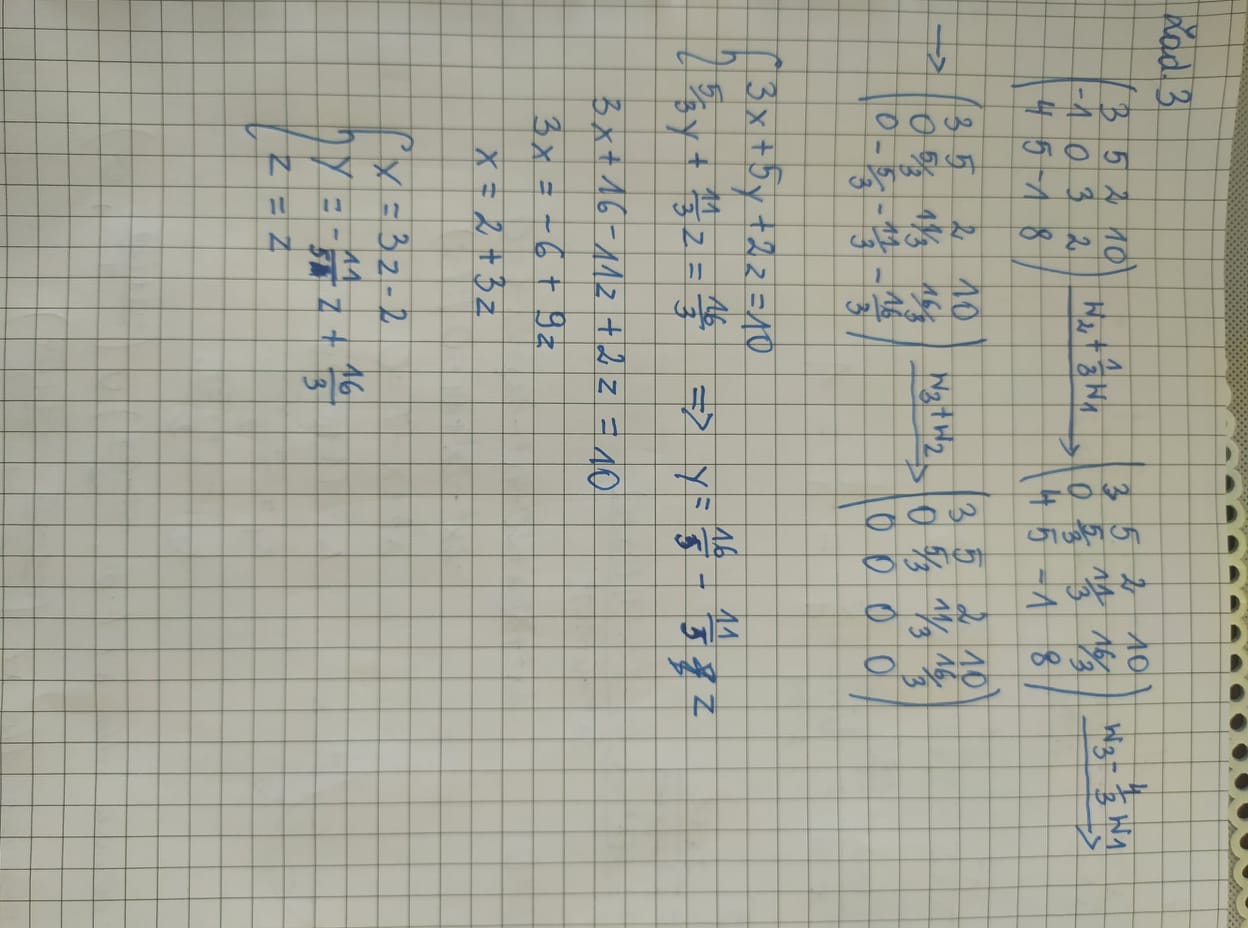 Zad. 3
(3 5 2 10
-1 0 3 2
4 5 -1 8) W2 + 1/3 W1 → (3 5 2 10
0 5/3 11/3 16/3
4 5 -1 8) W3 - 4/3 W1 →
→ (3 5 2 10
0 5/3 11/3 16/3
0 -5/3 -11/3 -16/3) W3 + W2 → (3 5 2 10
0 5/3 11/3 16/3
0 0 0 0)
{ 3x + 5y + 2z = 10
5/3 y + 11/3 z = 16/3 ⇒ y = 16/5 - 11/5 z
3x + 16 - 11z + 2z = 10
3x = -6 + 9z
x = 2 + 3z
{ x = 3z - 2
y = -11/5 z + 16/3
z = z